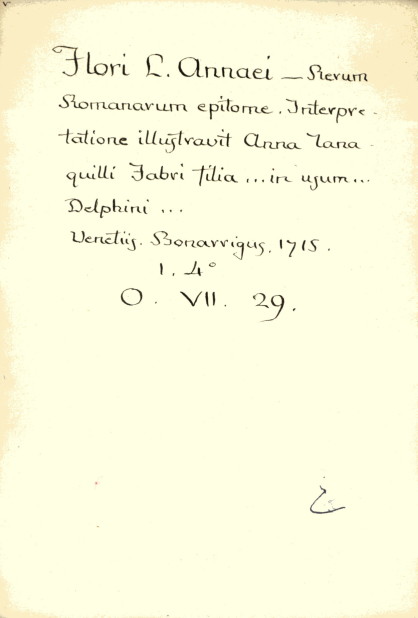 Flori L. Annaei — Rerum
Romanarum epitome. Interpre-
tatione illustravit Anna Tana-
quilli Fabri filia ... in usum...
Delphini ...
Venetiis. Bonarrigus. 1715.
1. 4°
O. VII. 29.